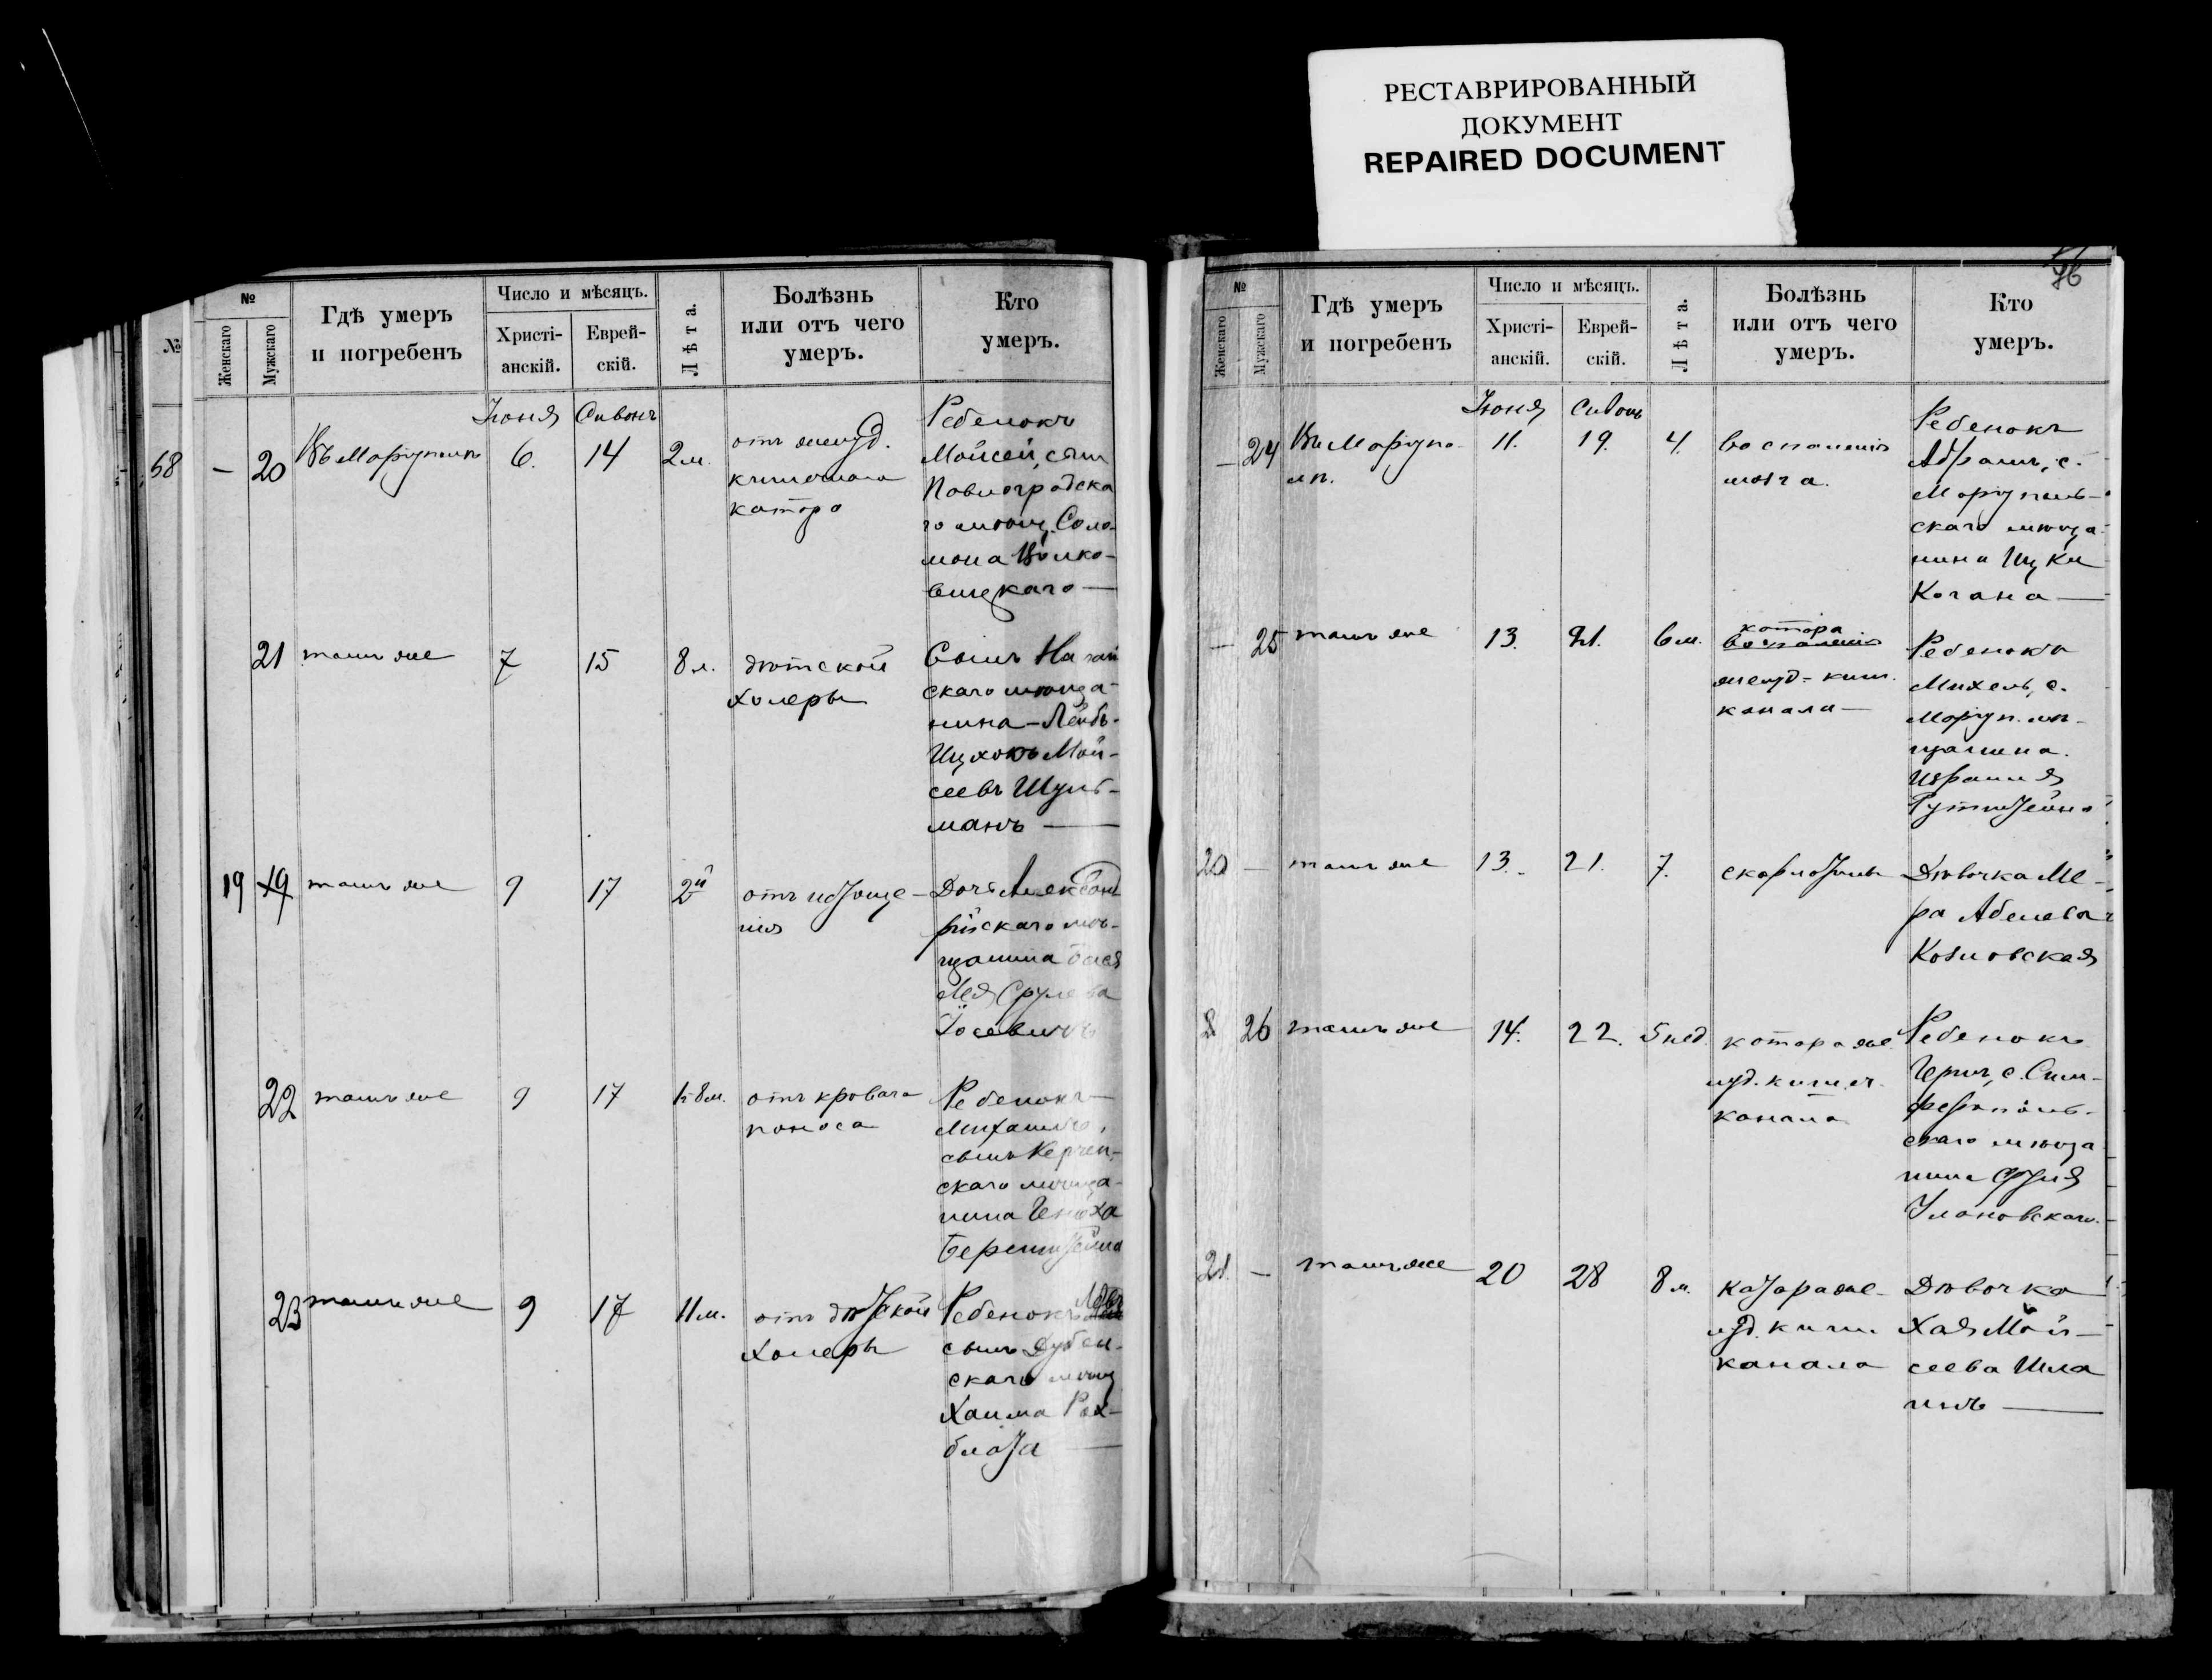 РЕСТАВРИРОВАННЫЙ
ДОКУМЕНТ
REPAIRED DOCUMENT
№
№
Женскаго
Мужскаго
Гдѣ умеръ
и погребенъ
Число и мѣсяцъ.
Христі-
анскій.
Еврей-
скій.
Лѣта.
Болѣзнь
или отъ чего
умеръ.
Кто
умеръ.
Іюня Сивонъ
68 — 20 Въ Маріуполѣ 6. 14 2 м.
отъ желуд.
кишечнаго
катара
Ребенокъ
Мойсей, сынъ
Павлоградска
го мѣщ. Соло-
мона Волко-
вицкаго —
21 тамъ же 7 15 8 м.
дѣтской
холеры
Сынъ
скаго мѣща-
нина — Лейбъ-
Ицхокъ Мой-
сеевъ Шуль-
манъ —
19 19 тамъ же 9 17
отъ истоще-
нія
Дочь Александ
рійскаго мѣ-
щанина
Срулева
Іосевичъ
22 тамъ же 9 17 1 8 м.
отъ кроваваго
поноса
Ребенокъ
сынъ Керчен-
скаго мѣща-
нина Геноха
Беренштейна
23 тамъ же 9 17 11 м.
отъ дѣтской
холеры
Ребенокъ
сынъ Дубен-
скаго мѣщ
Хаима Рох-
блата —
76
№
Женскаго
Мужскаго
Гдѣ умеръ
и погребенъ
Число и мѣсяцъ.
Христі-
анскій.
Еврей-
скій.
Лѣта.
Болѣзнь
или отъ чего
умеръ.
Кто
умеръ.
Іюня Сивонъ
— 24 Въ Маріупо-
лѣ.
11. 19. 4.
воспаленія
мозга.
Ребенокъ
Абрамъ, с.
Маріуполь-
скаго мѣща-
нина Ицки
Когана —
— 25 тамъ же 13. 21. 6 м.
катара
воспаленія
желуд-киш.
канала —
Ребенокъ
Михель, с.
Маріуп. мѣ-
щанина.
Израиля
Гутштейна
20 — тамъ же 13. 21. 7.
скарлатины
Дѣвочка Ме-
ра Абелева
Козловская
26 тамъ же 14. 22. 5 нед.
катара же
луд. кишеч.
канала
Ребенокъ
Герш, с. Сим-
ферополь-
скаго мѣща
нина Сруля
Улановскаго.
21. — тамъ же 20 28 8 м.
катара же-
луд. кишеч.
канала
Дѣвочка
Хая Мой-
сеева Шла
инъ —